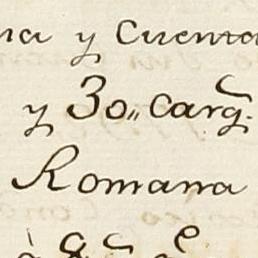 na y Cuenta
y 30,, carg.
Romana